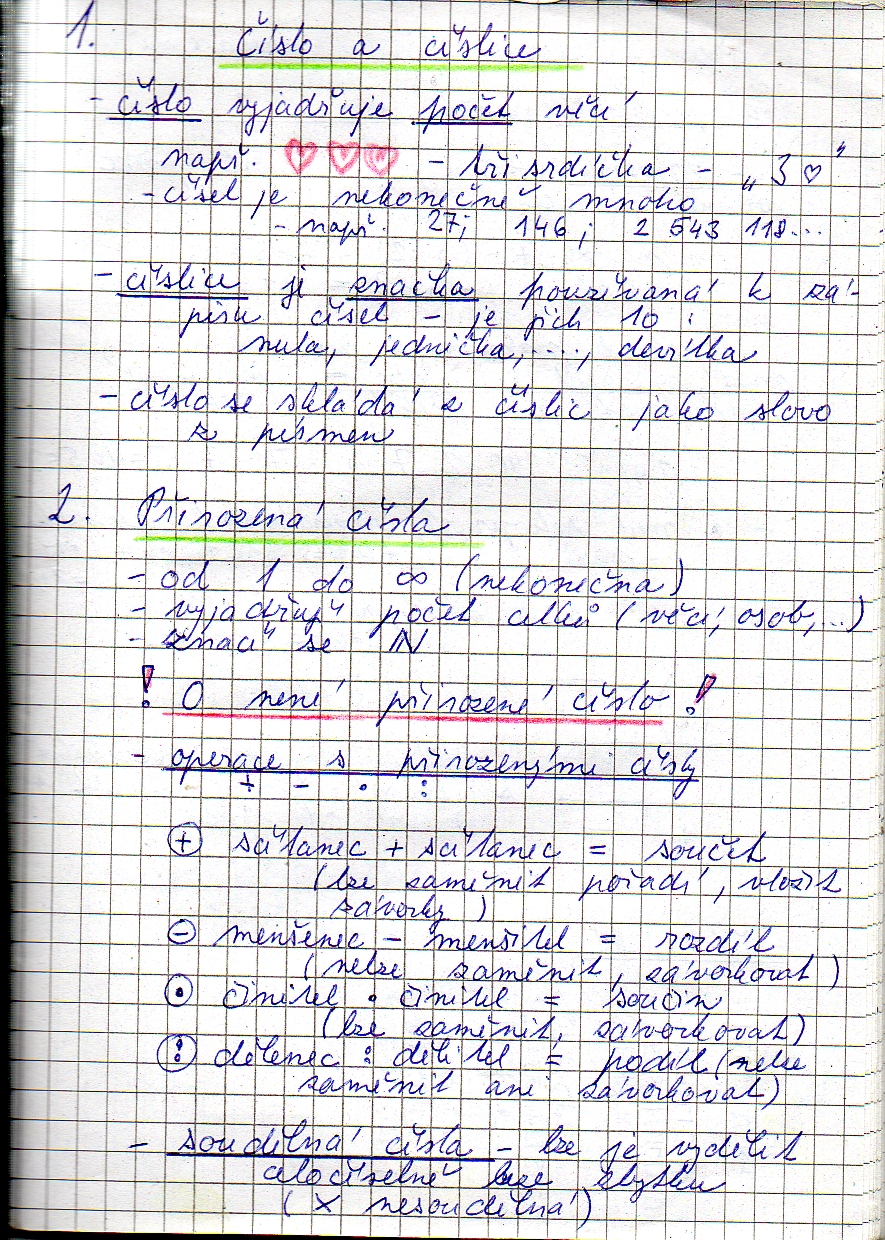 1. Číslo a číslice
- číslo vyjadřuje počet věcí
např. ♥ ♥ ♥ - tři srdíčka - „3 ♡"
- čísel je nekonečně mnoho
- např. 27; 146; 2 543 118...
- číslice je značka používaná k zá-
pisu čísel - je jich 10:
nula, jednička, ...., devítka
- číslo se skládá z číslic jako slovo
z písmen
2. Přirozená čísla
- od 1 do ∞ (nekonečna)
- vyjadřují počet celků (věcí, osob,...)
- značí se ℕ
! 0 není přirozené číslo !
- operace s přirozenými čísly
+ - • :
⊕ sčítanec + sčítanec = součet
(lze zaměnit pořadí, vložit
závorky)
⊖ menšenec - menšitel = rozdíl
(nelze zaměnit, závorkovat)
⊙ činitel • činitel = součin
(lze zaměnit, závorkovat)
(:) dělenec : dělitel = podíl (nelze
zaměnit ani závorkovat)
- soudělná čísla - lze je vydělit
celočíselně beze zbytku
(× nesoudělná)